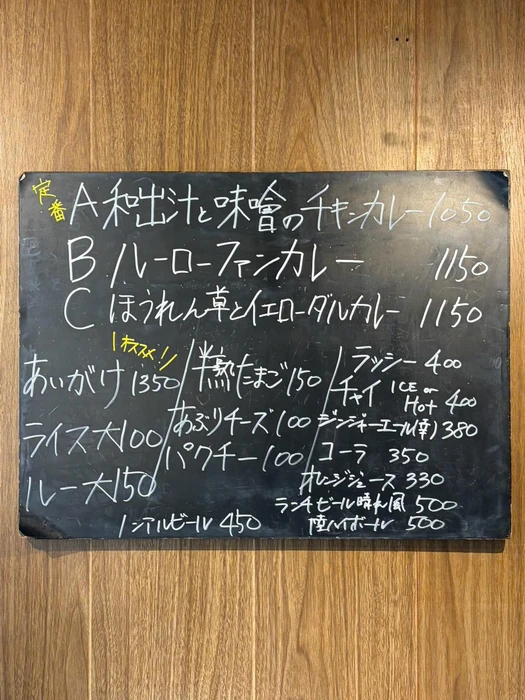 定番
A 和出汁と味噌のチキンカレー 1050
B ルーローファンカレー 1150
C ほうれん草とイエローダルカレー 1150
オススメ!!
あいがけ 1350
ライス大 100
ルー大 150
半熟たまご 150
あぶりチーズ 100
パクチー 100
ラッシー 400
チャイ ICE or Hot 400
ジンジャーエール(辛) 380
コーラ 350
オレンジジュース 330
ランチビール 晴れ風 500
陸ハイボール 500
ノンアルビール 450